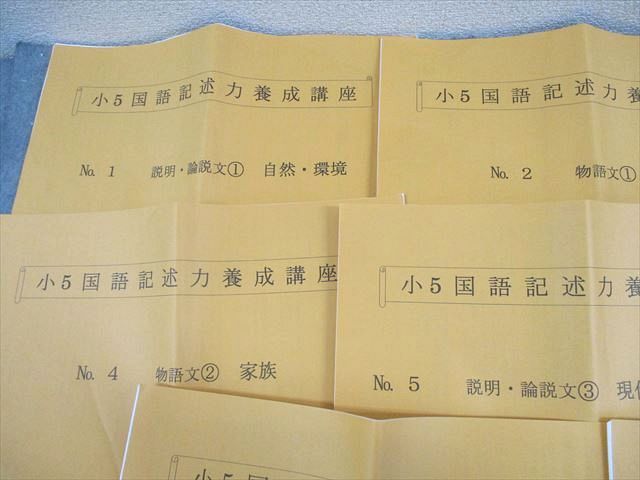 小5国語記述力養成講座
No. 1 説明・論説文① 自然・環境
小5国語記述力養
No. 2 物語文①
小5国語記述力養成講座
No. 4 物語文② 家族
小5国語記述力養
No. 5 説明・論説文③ 現
小5国語